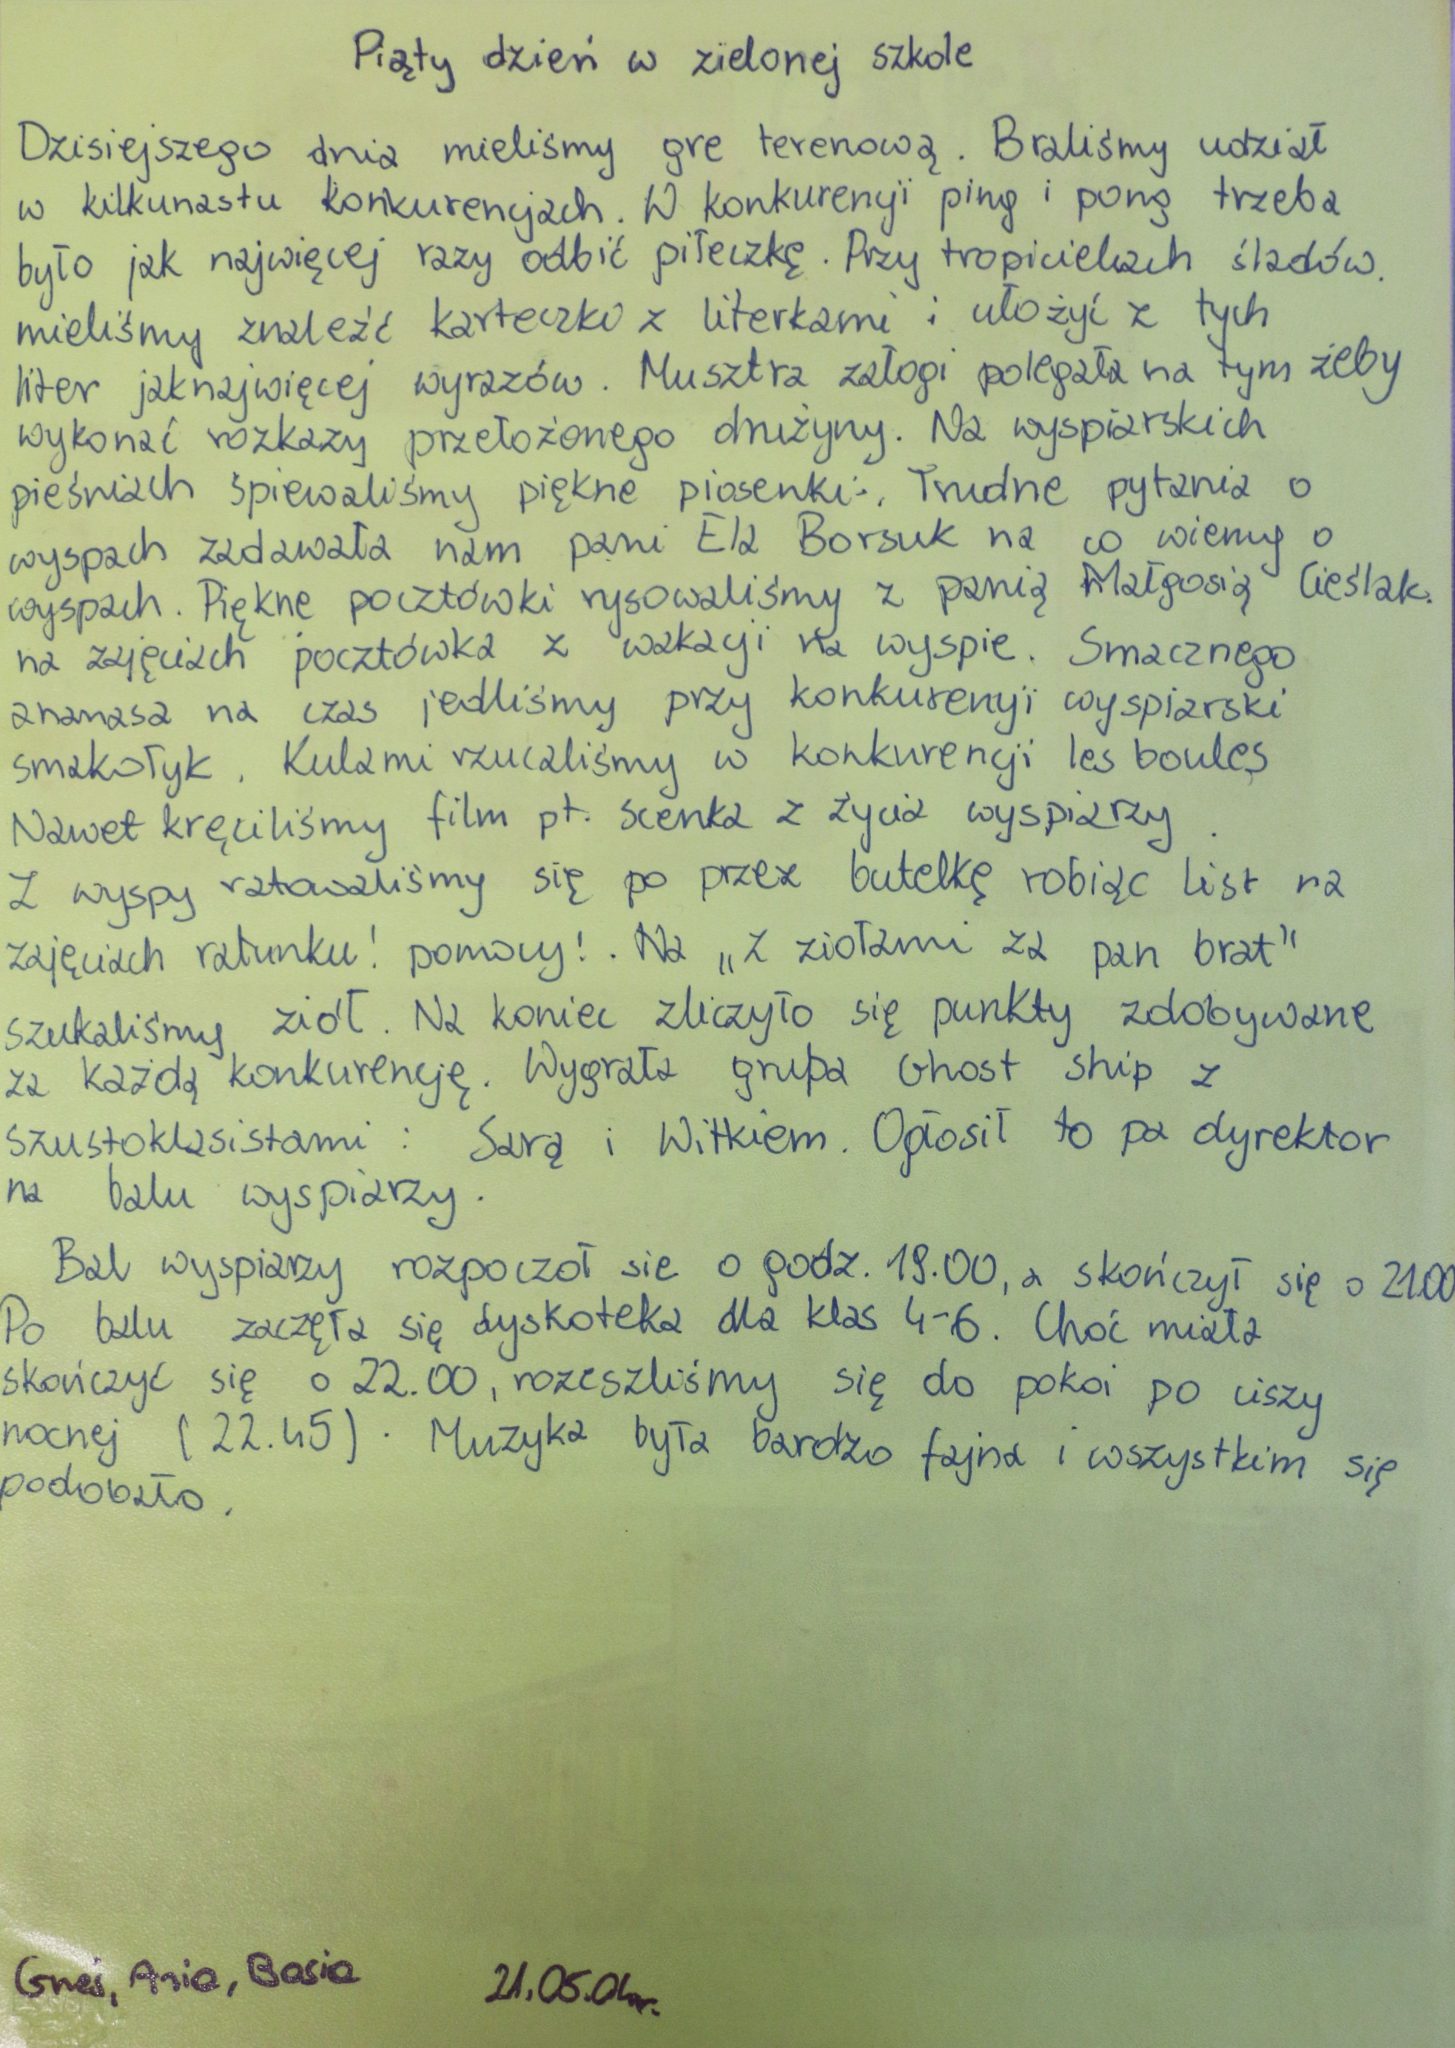 Piąty dzień w zielonej szkole
Dzisiejszego dnia mieliśmy gre terenową. Braliśmy udział
w kilkunastu konkurencjach. W konkurencji ping i pong trzeba
było jak najwięcej razy odbić piłeczkę. Przy tropicielach śladów.
mieliśmy znaleźć karteczki z literkami i ułożyć z tych
liter jaknajwięcej wyrazów. Musztra załogi polegała na tym żeby
wykonać rozkazy przełożonego drużyny. Na wyspiarskich
pieśniach śpiewaliśmy piękne piosenki. Trudne pytania o
wyspach zadawała nam pani Ela Borsuk na co wiemy o
wyspach. Piękne pocztówki rysowaliśmy z panią Małgosią Cieślak.
na zajęciach pocztówka z wakacji na wyspie. Smacznego
ananasa na czas jedliśmy przy konkurencji wyspiarski
smakołyk. Kulami rzucaliśmy w konkurencji les boules
Nawet kręciliśmy film pt. scenka z życia wyspiarzy.
Z wyspy ratowaliśmy się po przez butelkę robiąc list na
zajęciach ratunku! pomocy!. Na „z ziołami za pan brat"
szukaliśmy ziół. Na koniec zliczyło się punkty zdobywane
za każdą konkurencję. Wygrała grupa Ghost ship z
szustoklasistami: Sarą i Witkiem. Ogłosił to pa dyrektor
na balu wyspiarzy.
Bal wyspiarzy rozpoczoł sie o godz. 19.00, a skończył się o 21.00
Po balu zaczęła się dyskoteka dla klas 4-6. Choć miała
skończyć się o 22.00, rozeszliśmy się do pokoi po ciszy
nocnej (22.45). Muzyka była bardzo fajna i wszystkim się
podobało.
Ania, Basia 21.05.04r.